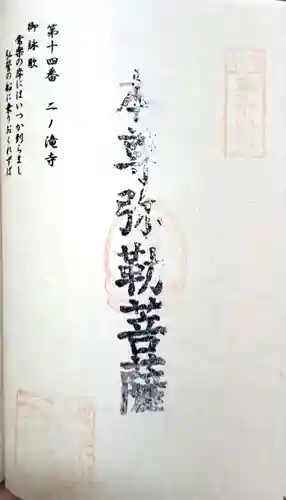 本尊弥勒菩薩
第十四番 二ノ滝寺
御詠歌
常楽の岸にはいつか到らまし
弘誓の船に乗りおくれずば